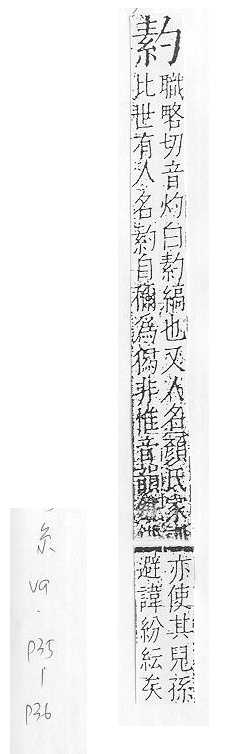 職略切音灼白縞也又人名顏氏家
比世有人名自稱為獡非惟音韻
亦使其兒孫
避諱紛紜矣
糸
V9
.
P35
|
P36